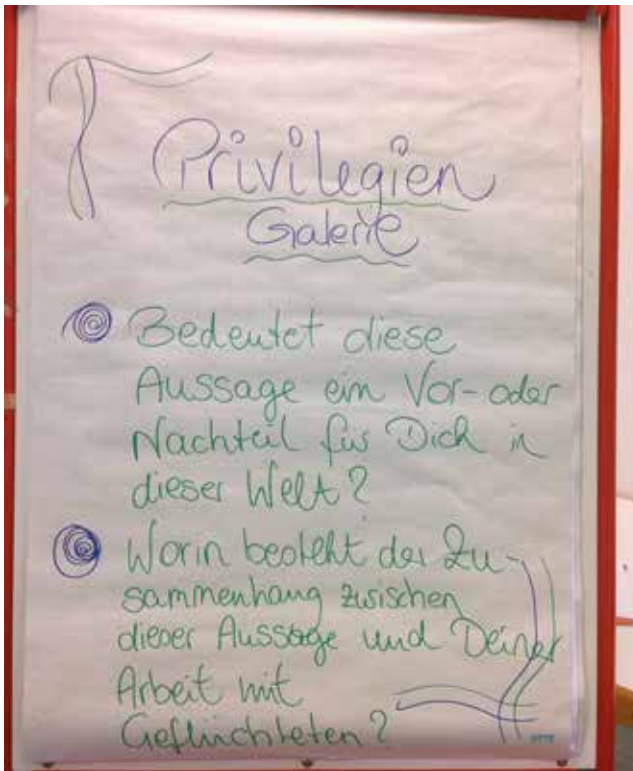 Privilegien
Galerie
Bedeutet diese
Aussage ein Vor- oder
Nachteil für Dich in
dieser Welt?
Worin besteht der Zu-
sammenhang zwischen
dieser Aussage und Deiner
Arbeit mit
Geflüchteten?